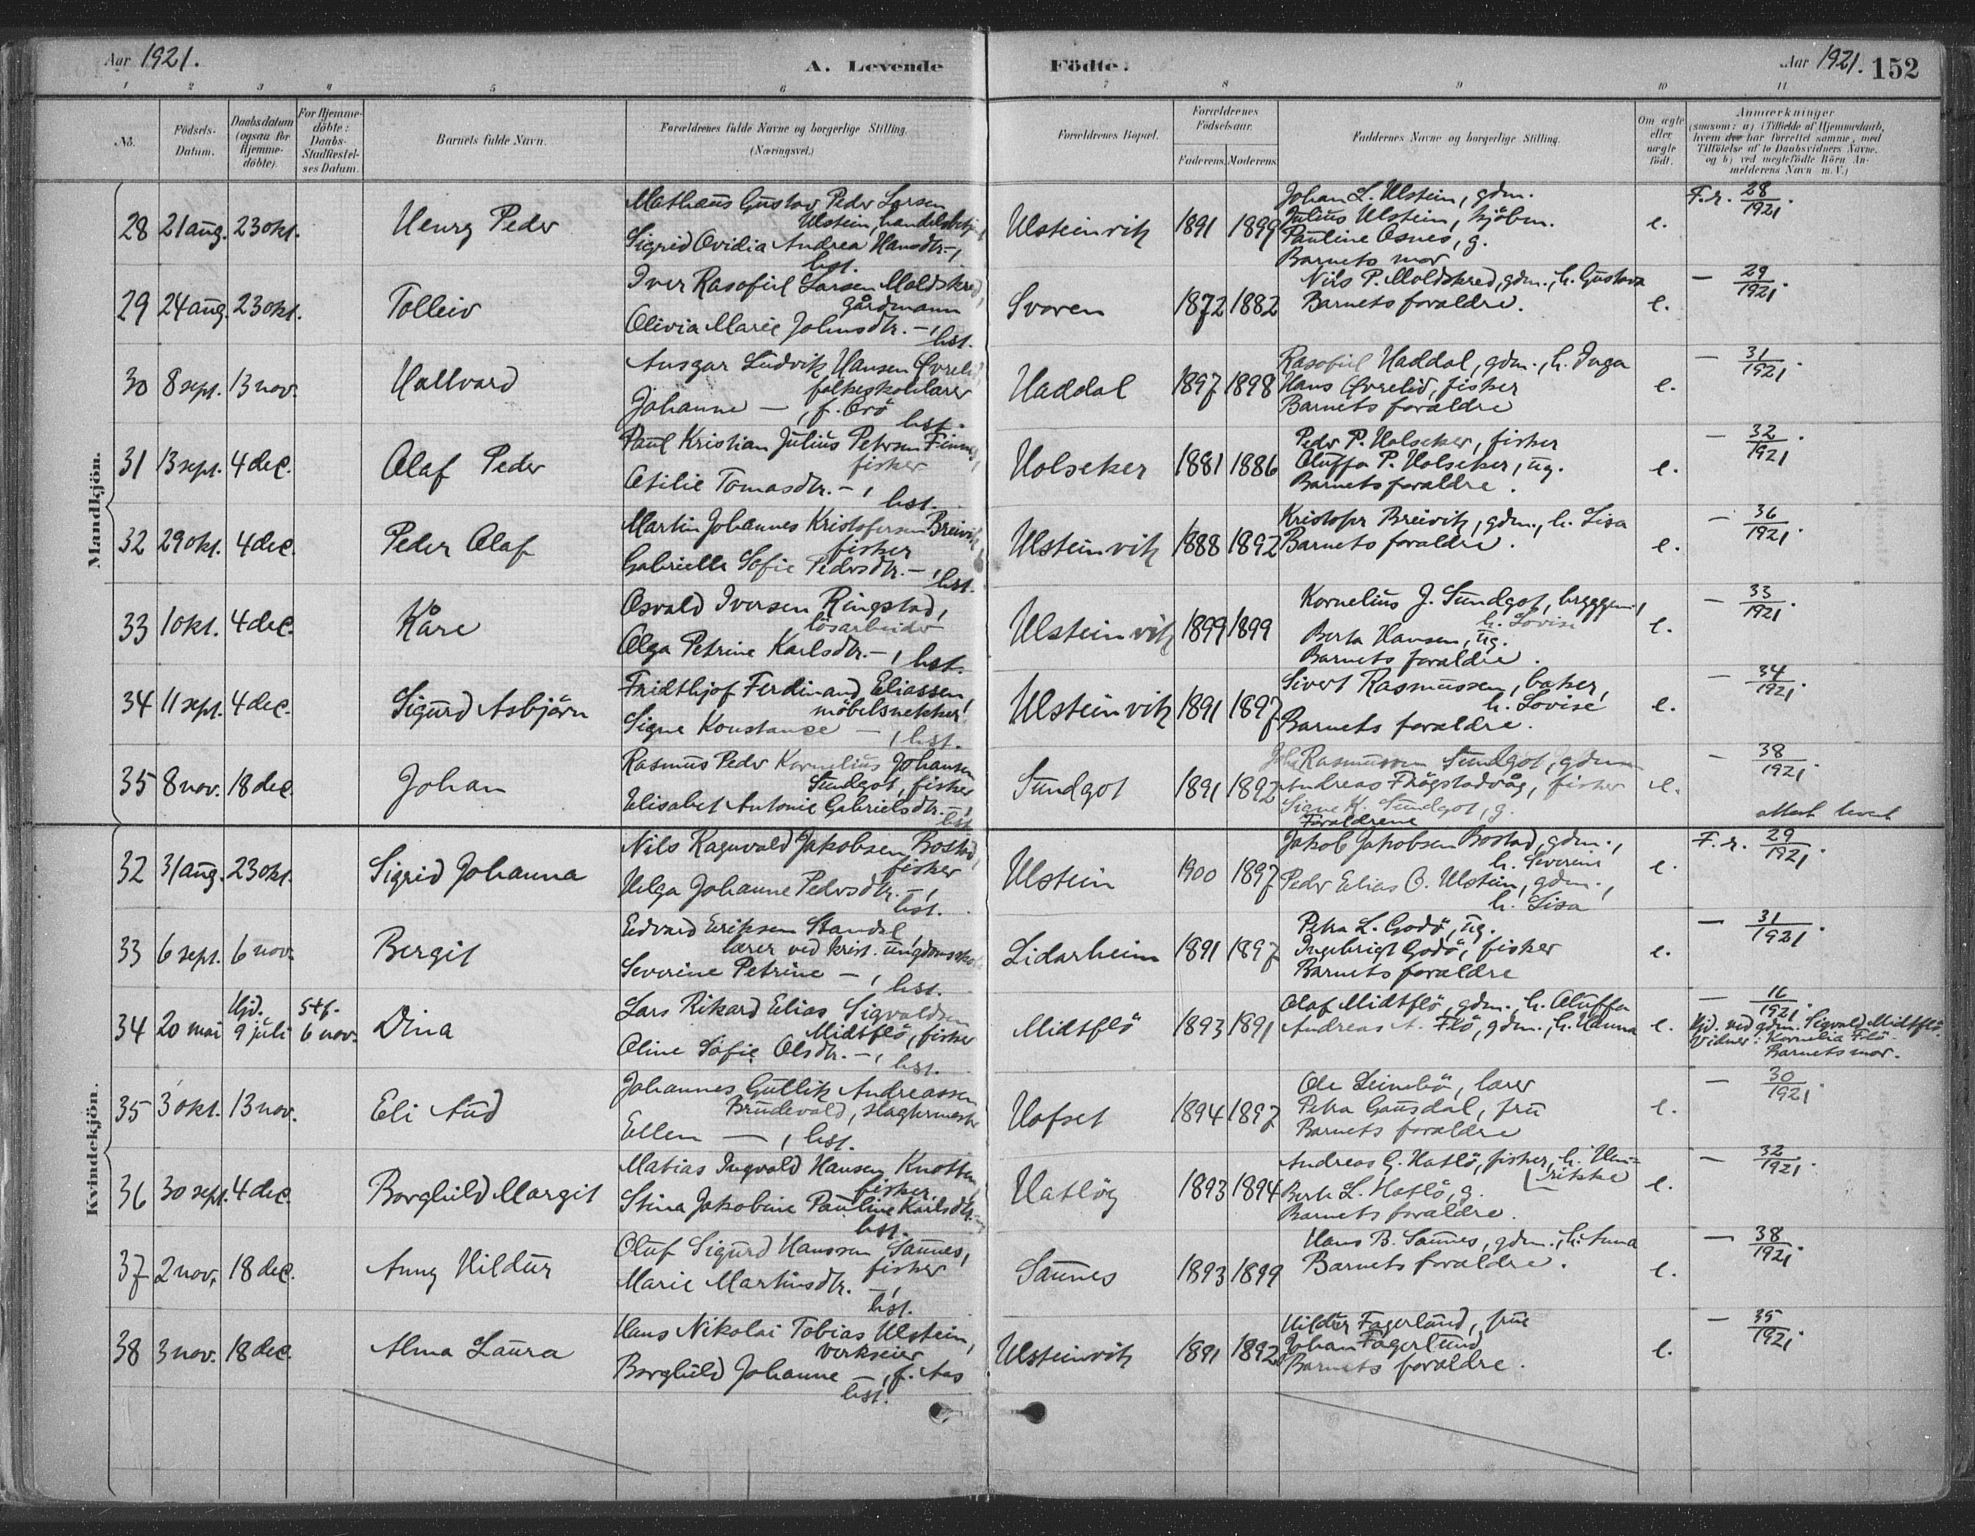 Aar 1921. A. Levende Födte. Aar 1921. 152
1 2 3 4 5 6 7 8 9 10 11
No. Födsels-Datum. Daabsdatum (ogsaa for Hjemme-döbte). For Hjemme-döbte: Daabs-Stadfæstel-ses Datum. Barnets fulde Navn. Forældrenes fulde Navne og borgerlige Stilling. (Næringsvei.) Forældrenes Bopæl. Forældrenes Födselsaar. Faderens. Moderens. Faddernes Navne og borgerlige Stilling. Om ægte eller uægte födt. Anmærkninger
(saasom: a) i Tilfælde af Hjemmedaab,
hvem der har forrettet samme, med
Tilföielse af to Daabsvidners Navne,
og b) ved uegtefödte Börn An-
melderens Navn m. V.)
Mandkjön.
28 21 aug. 23 okt. Henry Peder
Mathæus Gustav Peder Larsen
Ulstein, handelsbetj.,
Sigrid Ovidia Andrea Hansdtr. –,
hst.
Ulsteinvik 1891 1899
Johan L. Ulstein, gdm.
Julius Ulstein, kjöbm.
Pauline Osnes, g.
Barnets mor
e. F. r. 28/1921.
29 24 aug. 23 okt. Tolleiv
Iver Rasofiel Larsen Moldskred,
gårdmann
Olivia Marie Johnsdtr. –,
hst.
Svoren 1872 1882
Nils P. Moldskred, gdm., h. Gustava
Barnets forældre.
e. – 29/1921.
30 8 sept. 13 nov. Hallvard
Ansgar Ludvik Hansen Övrelid,
folkeskolelærer
Johanne –, f. Örö
hst.
Haddal 1897 1898
Rasofiel Haddal, gdm., h. Inga
Hans Övrelid, fisker
Barnets forældre
e. – 31/1921.
31 13 sept. 4 dec. Olaf Peder
Paul Kristian Julius Petersen Finnes,
fisker
Otilie Tomasdtr. –,
hst.
Holseker 1881 1886
Peder P. Holseker, fisker
Oluffa P. Holseker, ug.
Barnets forældre.
e. – 32/1921.
32 29 okt. 4 dec. Peder Olaf
Martin Johannes Kristofersen Breivik,
fisker
Gabrielle Sofie Pedersdtr. –,
hst.
Ulsteinvik 1888 1892
Kristofer Breivik, gdm., h. Lisa
Barnets forældre.
e. – 36/1921.
33 1 okt. 4 dec. Kåre
Osvald Iversen Ringstad,
lösarbeider
Olga Petrine Karlsdtr. –,
hst.
Ulsteinvik 1899 1899
Kornelius J. Sundgot, bryggem.,
h. Lovise
Berta Hansen, ug.
Barnets forældre.
e. – 33/1921.
34 11 sept. 4 dec. Sigurd Asbjörn
Fridthjof Ferdinand Eliassen,
möbelsnekker
Signe Konstanse –, hst.
Ulsteinvik 1891 1897
Sivert Rasmussen, baker,
h. Lovise
Barnets forældre.
e. – 34/1921.
35 8 nov. 18 dec. Johan
Rasmus Peder Kornelius Johansen
Sundgot, fisker
Elisabet Antonie Gabrielsdtr. –,
hst.
Sundgot 1891 1892
Rasmussen Sundgot, gdm
Andreas Flögstadvåg, fisker
Signe K. Sundgot, g.
Forældrene
e. – 38/1921.
attest levert
Kvindekjön.
32 31 aug. 23 okt. Sigrid Johanna
Nils Ragnvald Jakobsen Bostad,
fisker
Helga Johanne Pedersdtr. –,
hst.
Ulstein 1900 1897
Jakob Jakobsen Bostad, gdm.,
h. Severine
Peder Elias O. Ulstein, gdm.,
h. Lisa
e. F. r. 29/1921.
33 6 sept. 6 nov. Bergit
Edvard Eriksen Standal,
lærer ved krist. ungdomsskole
Severine Petrine –,
hst.
Lidarheim 1891 1897
Petra L. Godö, ug.
Ingebrigt Godö, fisker
Barnets forældre
e. – 31/1921.
34 20 mai Hjd. 9 juli Stf. 6 nov. Dina
Lars Rikard Elias Sigvaldsen
Midtflö, fisker
Oline Sofie Olsdtr. –,
hst.
Midtflö 1893 1891
Olaf Midtflö, gdm., h. Oluffa
Andreas A. Flö, gdm., h. Hanna
e. – 16/1921.
Hjd. ved gdm. Sigvald Midtflö.
Vidner: Kornelia Flö
Barnets mor.
35 3 okt. 13 nov. Eli Aud
Johannes Gutlik Andreassen
Brudevold, slagtermester
Ellen –, hst.
Hofset 1894 1897
Ole Leinebö, lærer
Petra Gausdal, frú
Barnets forældre
e. – 30/1921.
36 30 sept. 4 dec. Borghild Margit
Matias Ingvald Hansen Knotten,
fisker
Stina Jakobine Pauline Karlsdtr.
hst.
Hatlöy 1893 1894
Andreas G. Hatlö, fisker, h. Hen-
rikke
Berte L. Hatlö, g.
Barnets forældre.
e. – 32/1921.
37 2 nov. 18 dec. Anny Hildur
Oluf Sigurd Hanssen Saunes,
fisker
Marie Martinsdtr. –,
hst.
Saunes 1893 1899
Hans B. Saunes, gdm., h. Anna
Barnets forældre.
e. – 38/1921.
38 3 nov. 18 dec. Alma Laura
Hans Nikolai Tobias Ulstein,
verkseier
Borghild Johanne –, f. Aas
hst.
Ulsteinvik 1891 1892
Hildur Fagerlund, frue
Johan Fagerlund
Barnets forældre.
e. – 35/1921.